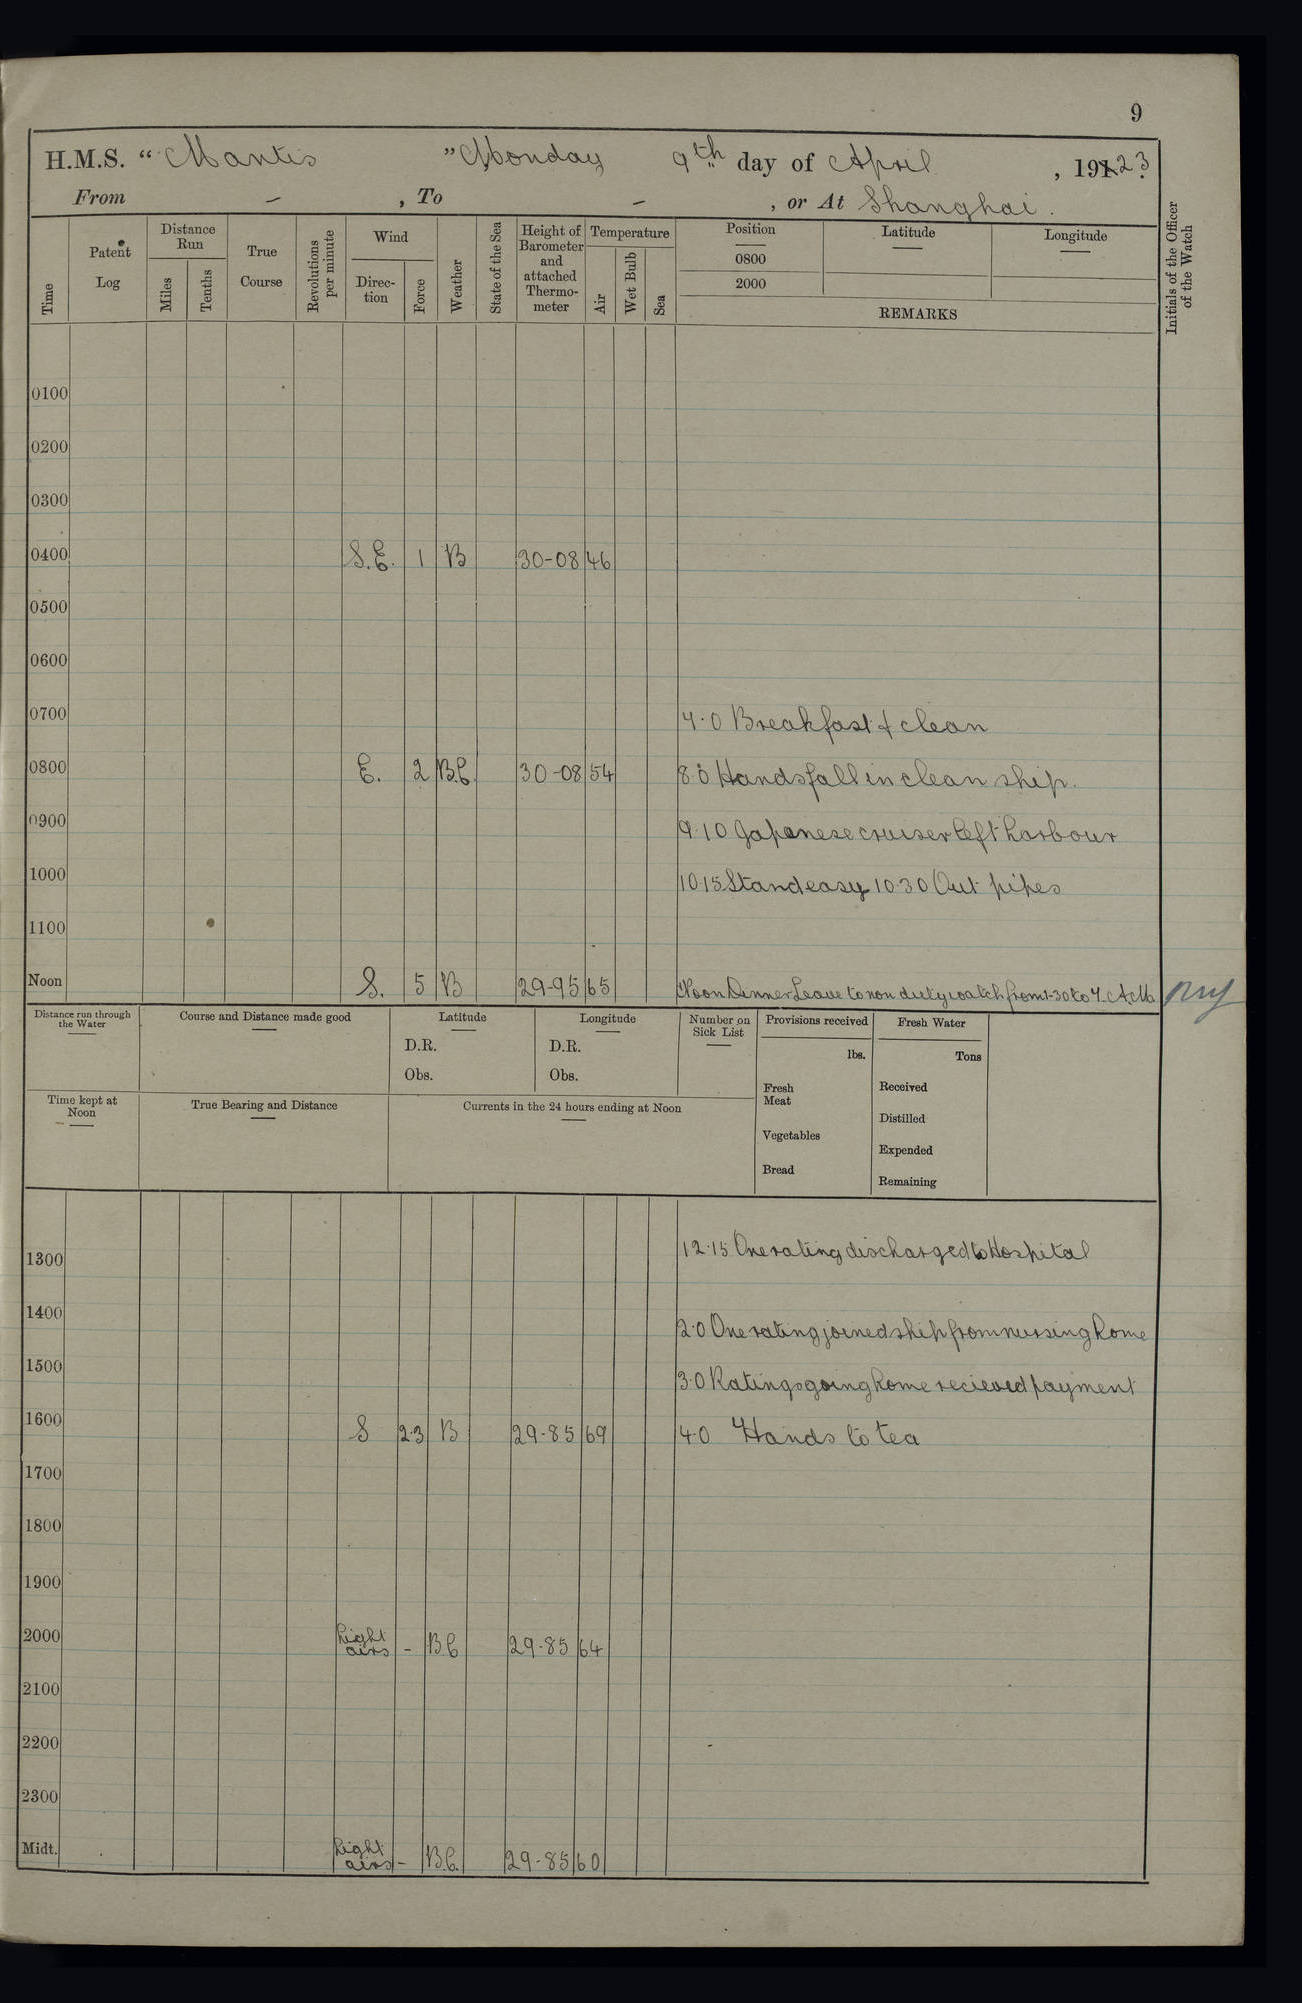 9
H.M.S. “ Mantis ” Monday 9th day of April , 1923
From – , To – , or At Shanghai .
Time Patent Log Distance Run Miles Tenths True Course Revolutions per minute Wind Direc- tion Force Weather State of the Sea Height of Barometer and attached Thermo- meter Temperature Air Wet Bulb Sea Position 0800 2000 Latitude Longitude Initials of the Officer of the Watch
REMARKS
0100
0200
0300
0400 S.E. 1 B 30-08 46
0500
0600
0700 7.0 Breakfast & clean
0800 E. 2 B.C. 30-08 54 8.0 Hands fall in clean ship.
0900 9.10 Japanese cruiser left harbour
1000 10.15 Stand easy 10.30 Out pipes
1100
Noon S. 5 B 29-95 65 Noon Dinner Leave to non duty watch from 1-30 to 7. A.M.
Distance run through the Water Course and Distance made good Latitude Longitude Number on Sick List Provisions received Fresh Water
D.R. D.R. lbs. Tons
Obs. Obs. Fresh Meat Received
Time kept at Noon True Bearing and Distance Currents in the 24 hours ending at Noon
Distilled
Vegetables Expended
Bread Remaining
12.15 One rating discharged to Hospital
1300
1400 2.0 One rating joined ship from nursing home
1500 3.0 Ratings going home recieved payment
1600 S 2.3 B 29-85 69 4.0 Hands to tea
1700
1800
1900
2000 Light airs - B.C 29-85 64
2100
2200
2300
Midt. Light airs - B.C. 29-85 60